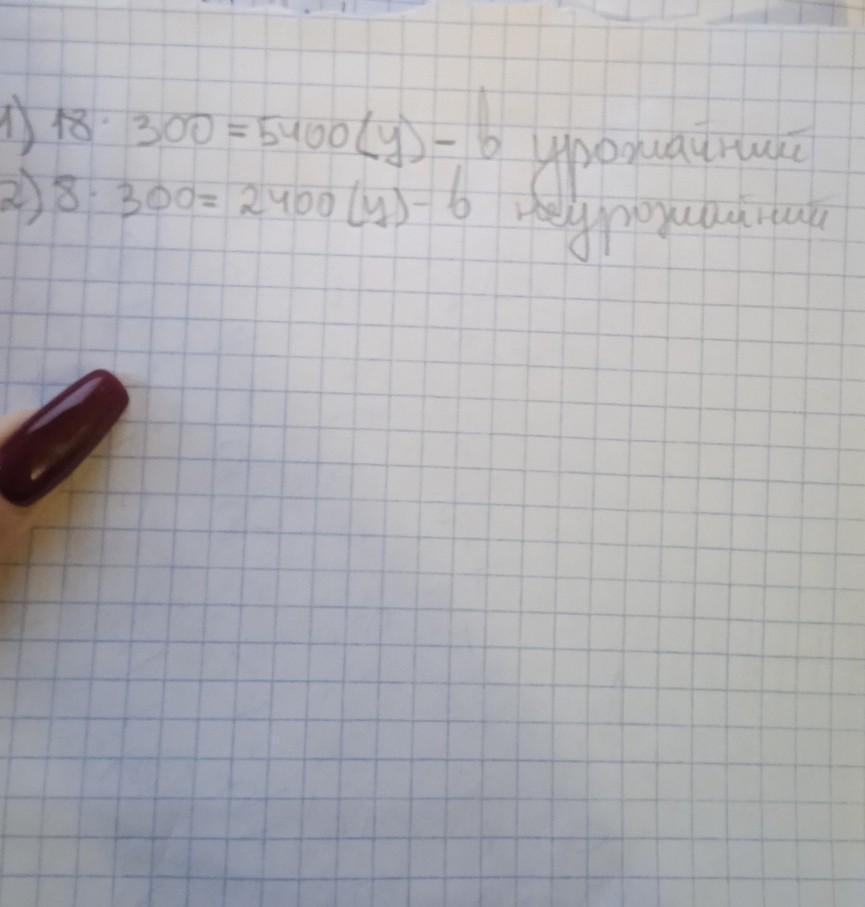 1) 18 · 300 = 5400 (ц) - в урожайний
2) 8 · 300 = 2400 (ц) - в неурожайний